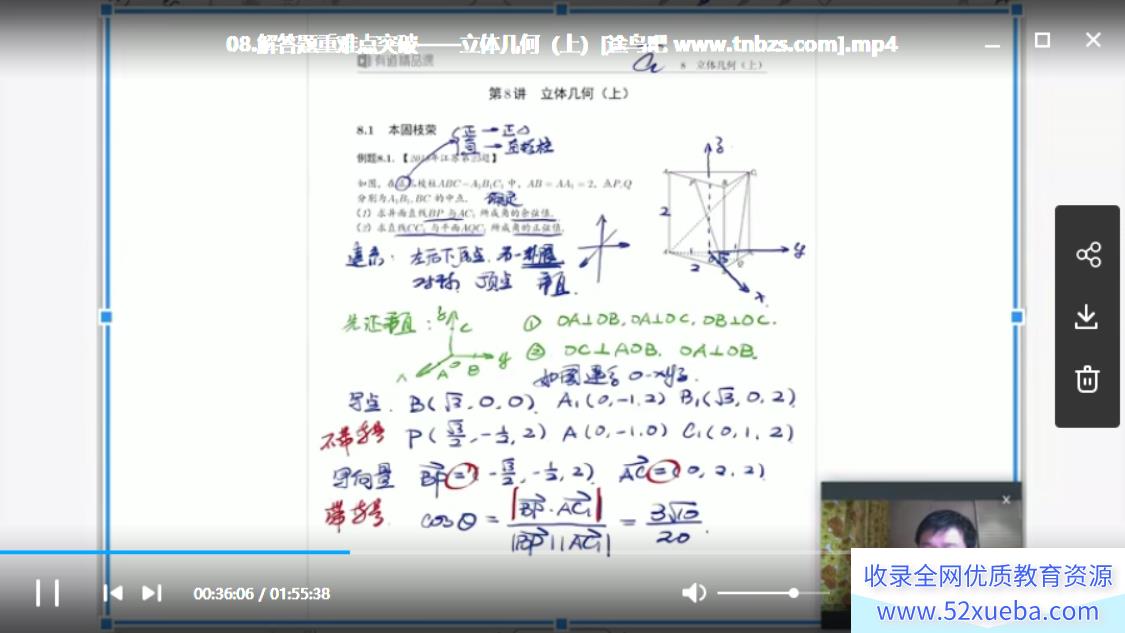 08.解答题重难点突破——立体几何（上）[途鸟吧 www.tnbzs.com].mp4
有道精品课
8 立体几何（上）
第8讲 立体几何（上）
8.1 本固枝荣
正 → 正△
直 → 直棱柱
例题8.1.【2018年江苏第22题】
如图，在正三棱柱ABC－A₁B₁C₁中，AB＝AA₁＝2，点P,Q
分别为A₁B₁, BC 的中点.
(1) 求异面直线BP 与AC₁ 所成角的余弦值.
(2) 求直线CC₁ 与平面AQC₁ 所成角的正弦值.
建系：左右下顶点
对称 顶点 垂直.
2
2
x
y
先证垂直：
A O B
C
y
① OA⊥OB, OA⊥OC, OB⊥OC.
② OC⊥AOB. OA⊥OB.
如图建系 O-xyz.
写点. B(√3, 0, 0) A₁(0, -1, 2) B₁(√3, 0, 2)
不带等号 P(√3/2, -1/2, 2) A(0, -1, 0) C₁(0, 1, 2)
写向量 BP = (-√3/2, -1/2, 2) AC₁ = (0, 2, 2)
带等号 cosθ = |BP·AC₁| / |BP||AC₁| = 3√10 / 20.
00:36:06 / 01:55:38
收录全网优质教育资源
www.52xueba.com